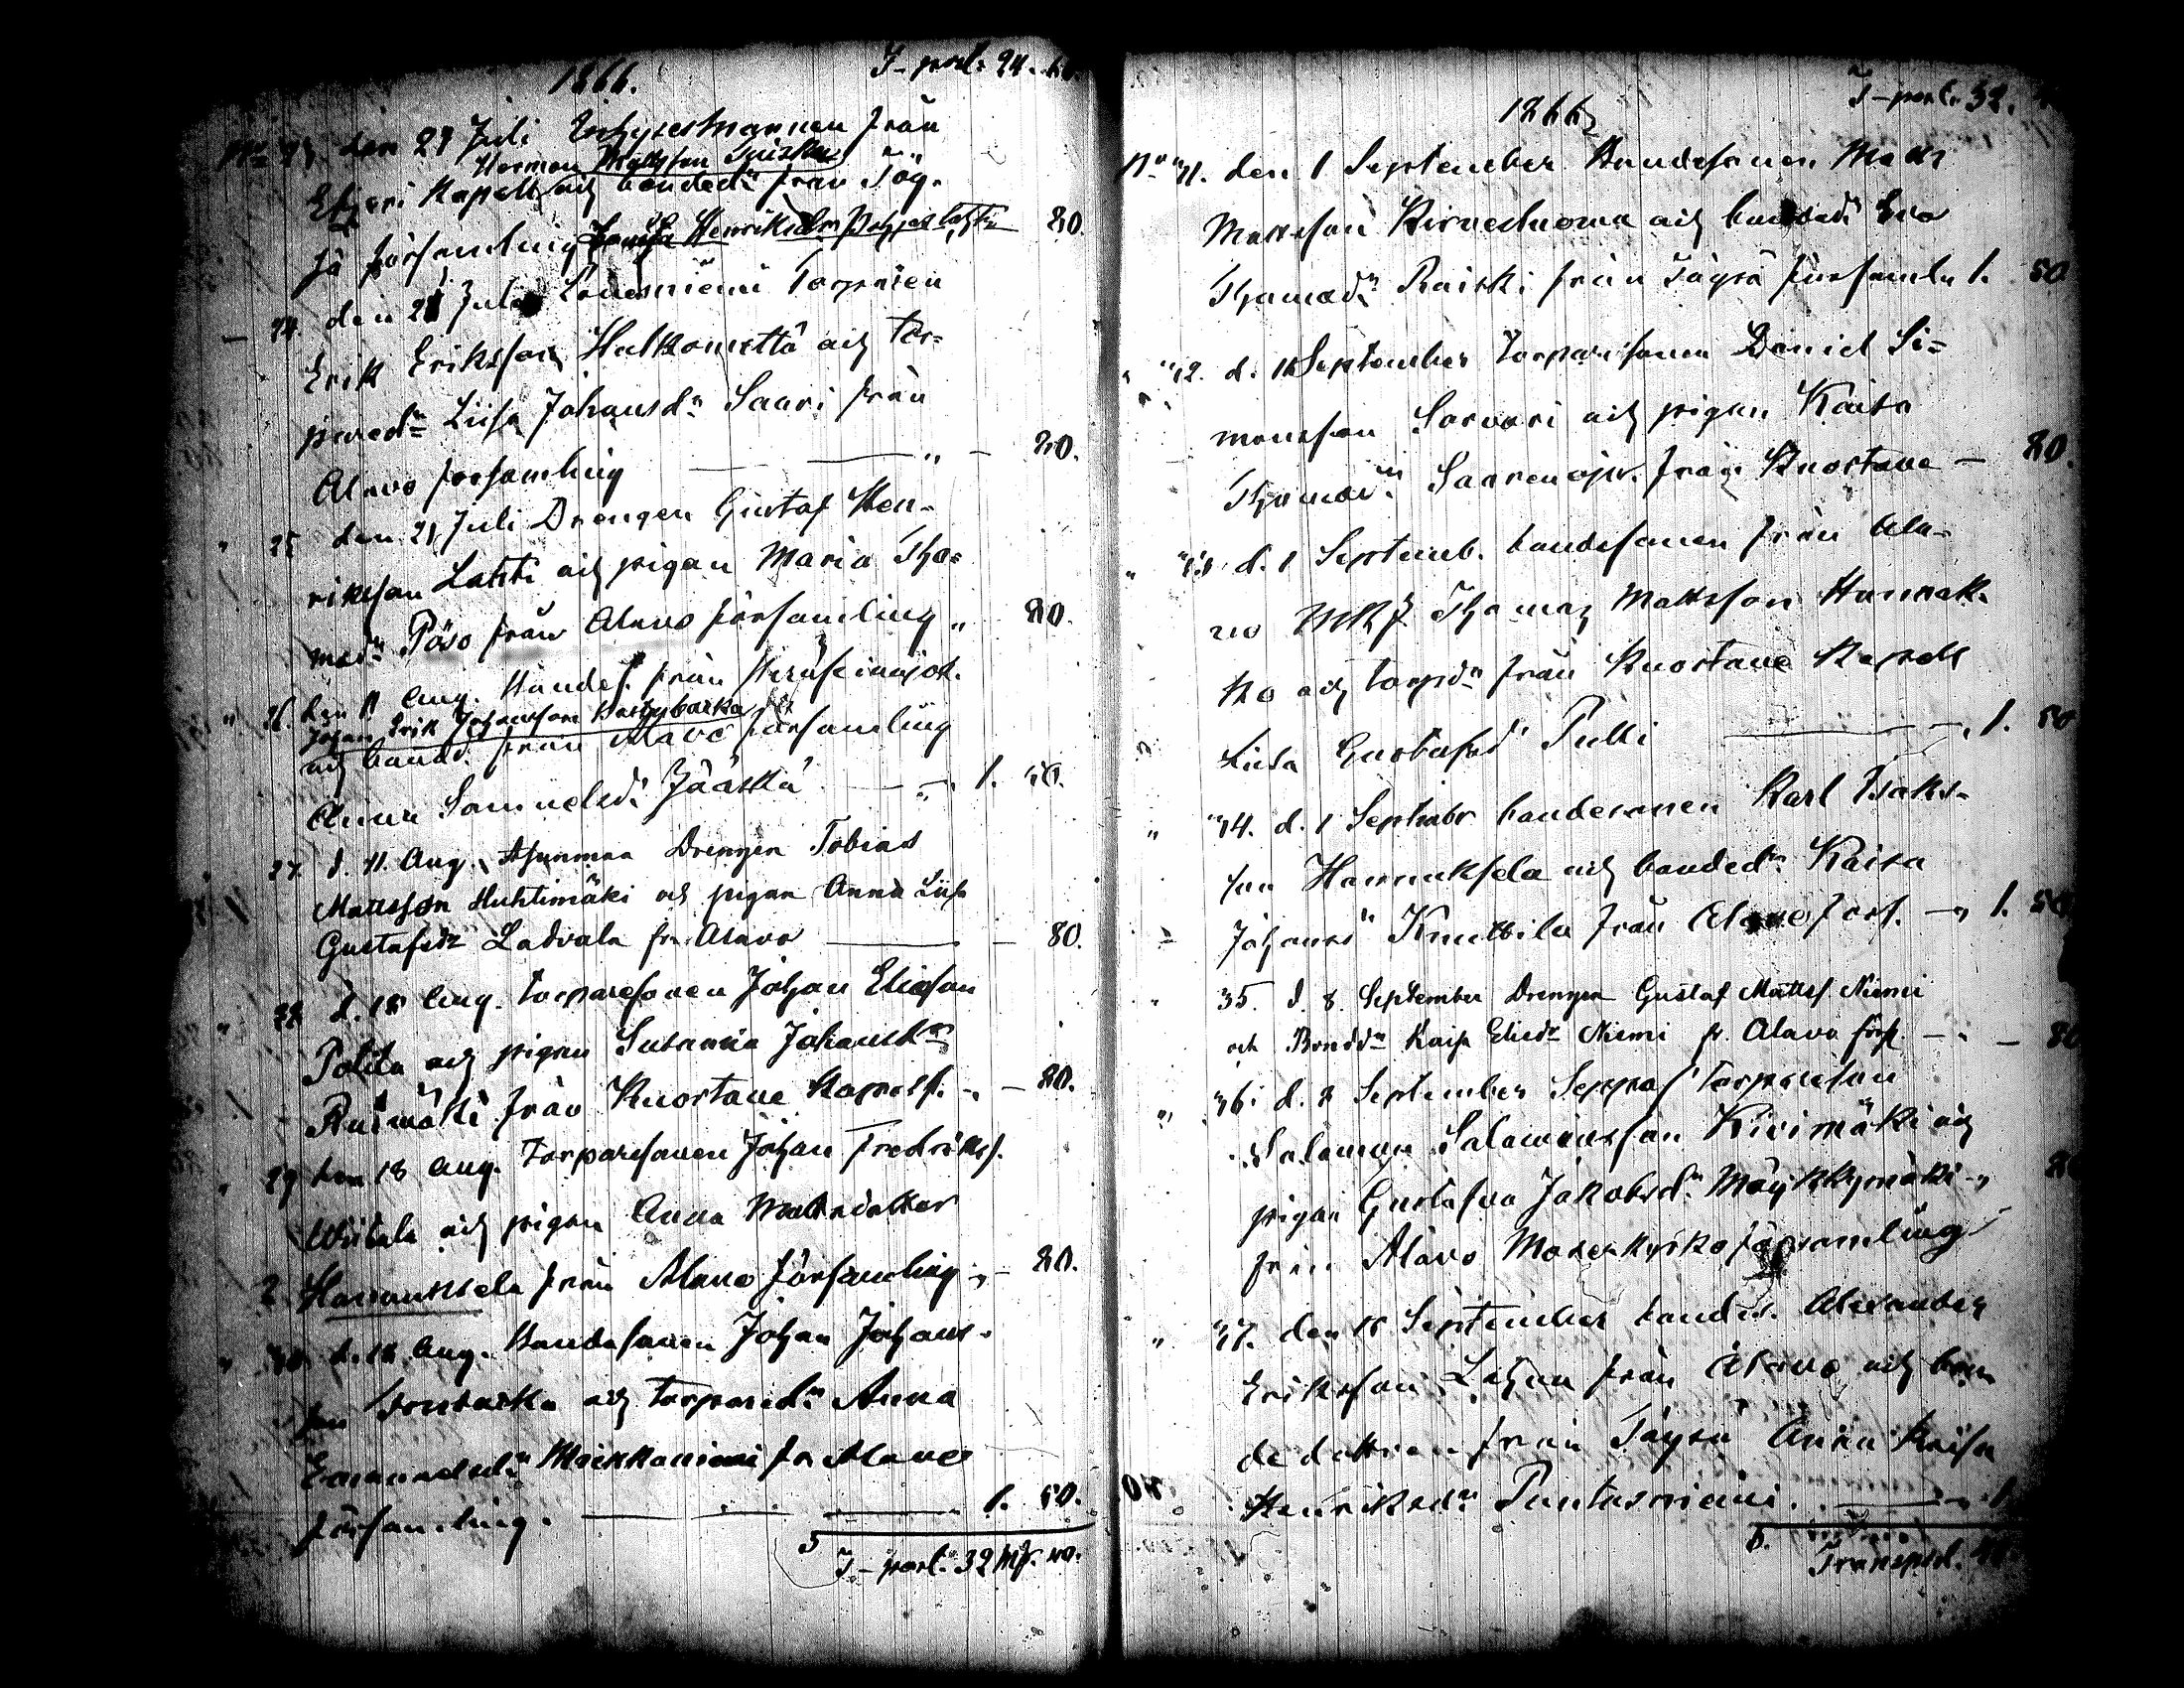 1866.
T-port. 24. 60.
den 27 Juli från
Herman Mattsson
Etseri Kapell och bonded:n från Töy-
sä församling Henriksdr 80.
24. den 21 Juli Länsniemi Torparen
Erik Eriksson och tor-
pared:n Liisa Johansd:n Saari från
Alavo församling — — „ — 80.
25 den 21 Juli Drengen Gustaf Hen-
riksson Lahti och pigan Maria Tho-
masd:n Pöso från Alavo församling „ 80.
26. den 11 Aug. Bondes. från
Johan Erik Johansson
och bondd. från Alavo församling
Anna Samuelsd: Jääskä — „ 1. 50.
27. d. 11. Aug. Drengen Tobias
Mattsson Huhtimäki och pigan Anna Liisa
Gustafsdr Ladvala fr. Alavo — — 80.
28 d. 18 Aug. torparesonen Johan Eliasson
Potila och pigan Susanna Johansd:n
från Kuortane Kapell. „ — 80.
29 den 18 Aug. Torparesonen Johan Fredrikss.
Wiitala och pigan Anna Mattsdotter
2. Hannuksela från Alavo församling „ — 80.
30 d. 18 Aug. Bondesonen Johan Johans-
son och torpared:n Anna
Emanuelsd:n fr. Alavo
församling. — — — 1. 50.
5
T-port. 32 Mk. 40.
1866
T-port. 32.
N:o 31. den 1 September Bondesonen Matts
Mattsson Kirvestuoma och bonded: Eva
Thomasd:n Raiski från Töysä församl. 1. 50
" 32. d. 1 September Torparesonen Daniel Si-
monsson Sarvari och pigan Kaisa
Thomasd:n från Kuortane — 80.
" 33 d. 1 Septemb. bondesonen från Ala-
vo Thomas Mattsson
ko och torpd:n från Kuortane Kapell
Liisa Gustafsd: Pulli — „ 1. 50
" 34. d. 1 Septembr bondesonen Karl Isaks-
son Hannuksela och bonded:n Kaisa
Johansd:n Knuttila från Alavo förs. — „ 1. 50.
35. d. 8. September Drengen Gustaf Mattss. Niemi
och Bondd:n Kaisa Eliedr Niemi fr. Alavo förs. — „ — 80
" 36. d. 8 September Torparesonen
Salomon Salomonsson Kivimäki och
pigan Gustafva Jakobsd:n Mäykkymäki „ 80
från Alavo Moderkyrko församling
" 37. den 15 September bondes. Alexander
Eriksson från Alavo och bon-
dedottren från Töysä Anna Kaisa
Henriksd:n Puntasniemi. — „ 1
6.
Transport.